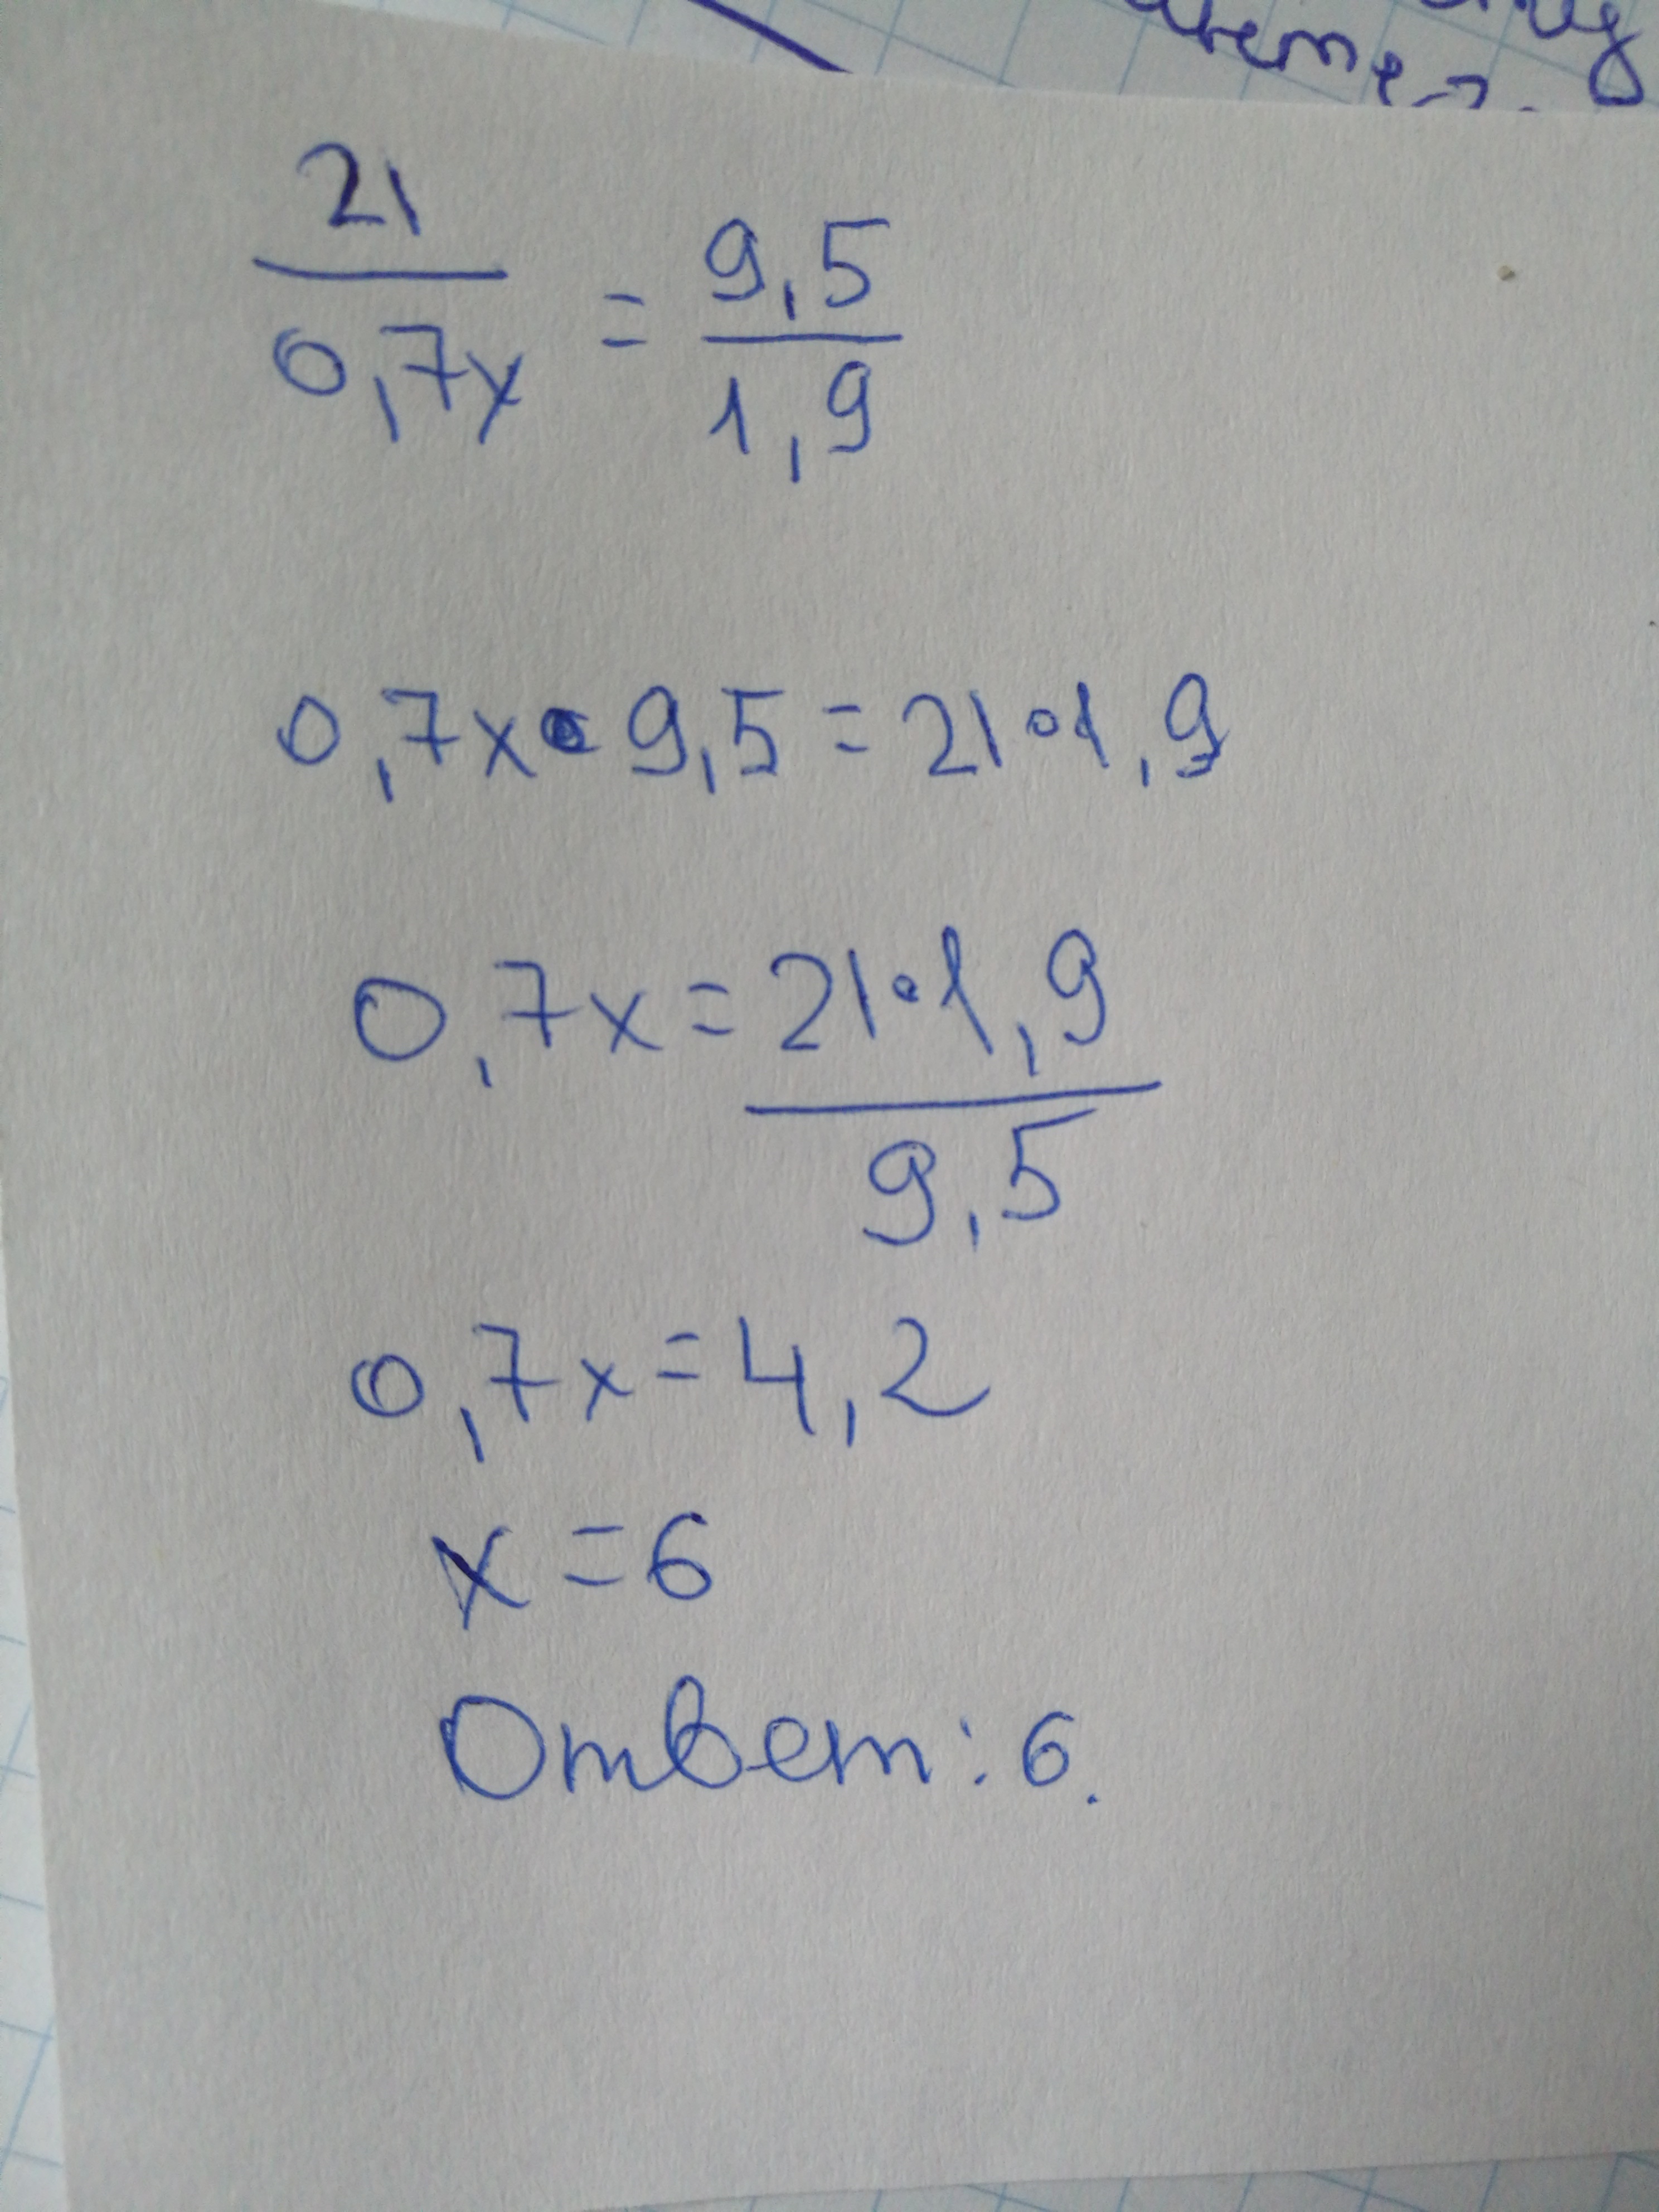 21/0,7x = 9,5/1,9
0,7x • 9,5 = 21 • 1,9
0,7x = 21 • 1,9/9,5
0,7x = 4,2
x = 6
Ответ: 6.